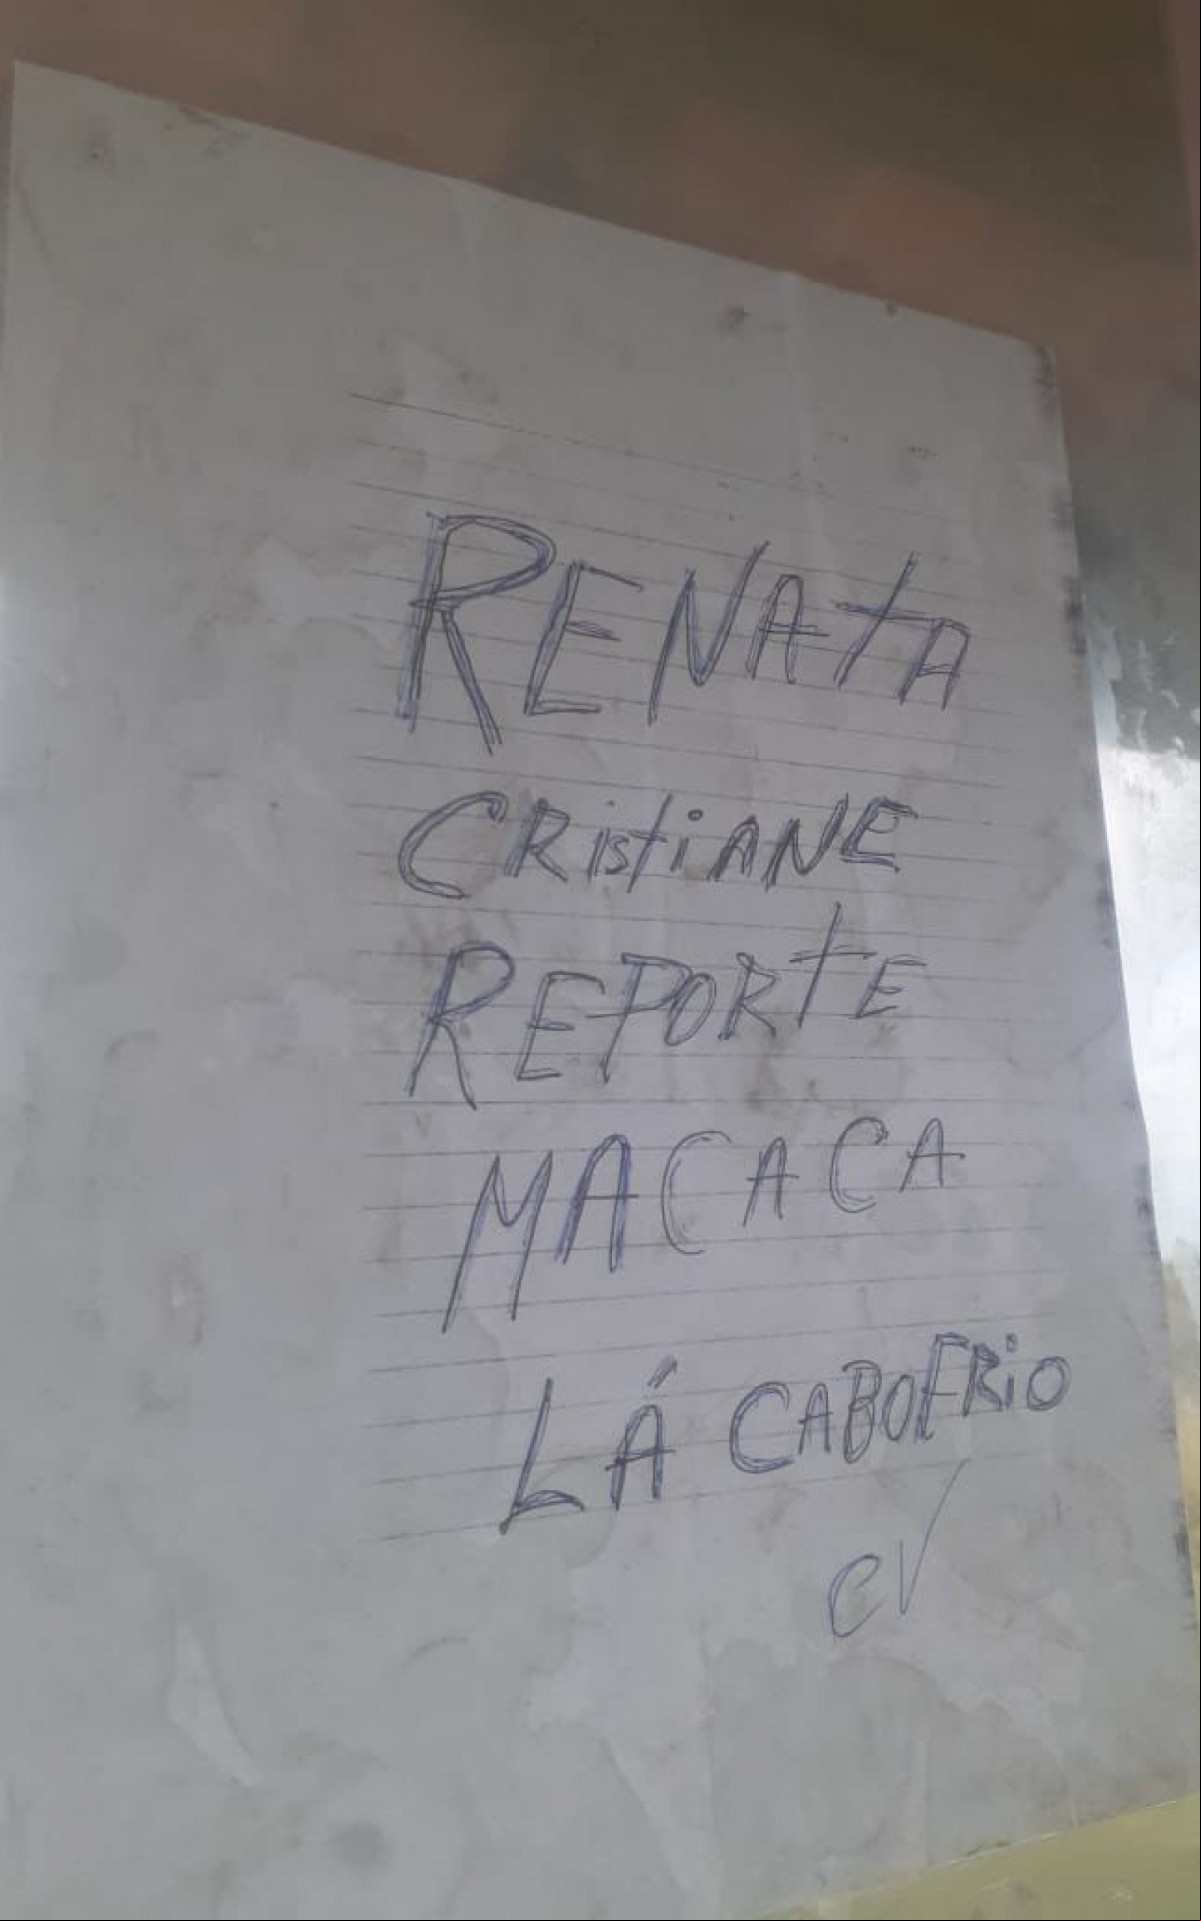 RENATA
CRistiANE
REPORTE
MACACA
LÁ CABOFRiO
CV